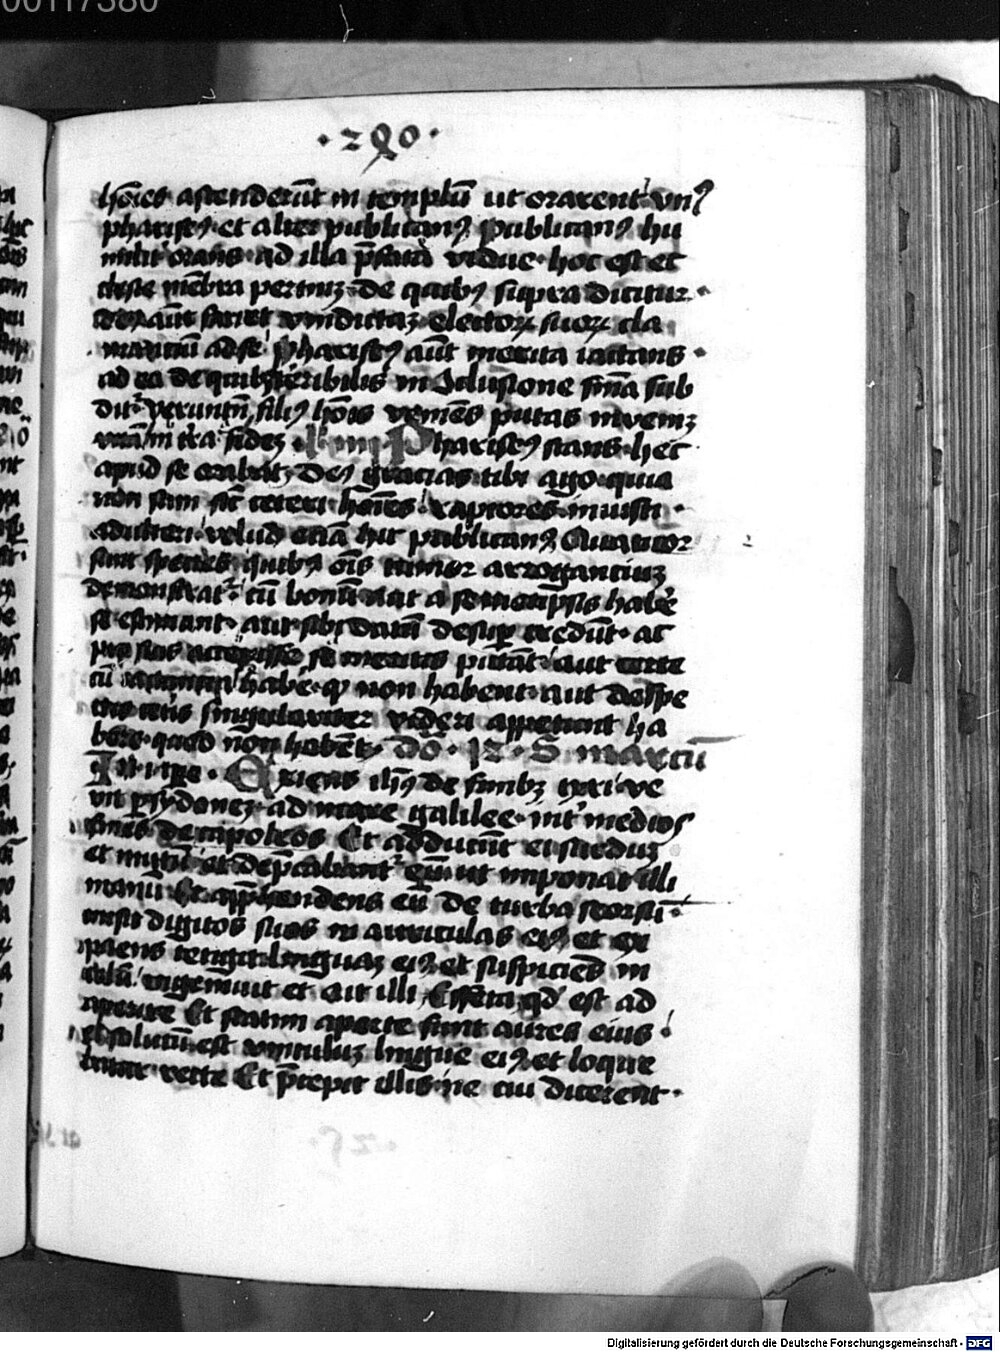 00117380
· 290 ·
hōīes ascenderūt in templū ut orarent vnꝰ
phariseꝰ et alter publicanꝰ publicanꝰ hu
militer orans ad illā p̄fatā vidue hoc est et
ecclesie mēbra pertinꝫ de quibꝰ supra dicitur ·
deꝰ aūt faciet vindictaꝫ electoꝝ suoꝝ cla
mantiū ad se phariseꝰ aūt merita iactans ·
ad ea de quibꝰ teribilis in 9clusione sn̄ia sub
dit᷑ verunt̄n filiꝰ hōīs veniēs putas inveniꝫ
in t̄ra fideꝫ Phariseꝰ stans hec
apud se orabat deꝰ gracias tibi ago quia
non sum sic̄ ceteri hōīes raptores iniusti ·
adulteri velud eciā hic publicanꝰ Quatuor
sunt species quibꝰ ōīs tumor arroganciuꝫ
demonstrat᷑ cū bonū aut a semetip̄sis habē
se estimant aut sibi datū desup credūt ac
pro suis accepisse se meritis putāt aut certe
cū iactant habē q̄ non habent aut despe
ctis ceteris singulariter videri appetunt ha
bere quod nōn habēt dō · 12 · S marcū
In illo tpe · Exiens ih̄s de finibꝫ tyri ve
nit p sydoneꝫ ad mare galilee int̄ medios
fines decapoleos Et adducūt ei surduꝫ
et mutū et dep̄cabant᷑ eū ut imponat illi
manū Et app̄hendens eū de turba seorsū
misit digitos suos in auriculas eiꝰ et ex
puens tetigit linguaꝫ eiꝰ et suspiciēs in
celū ingemuit et ait illi Effeta qd̄ est ad
aperire Et statim aperte sunt aures eius
et solutū est vinculuꝫ lingue eiꝰ et loque
batur recte Et p̄cepit illis ne cui dicerent ·
Digitalisierung gefördert durch die Deutsche Forschungsgemeinschaft - DFG